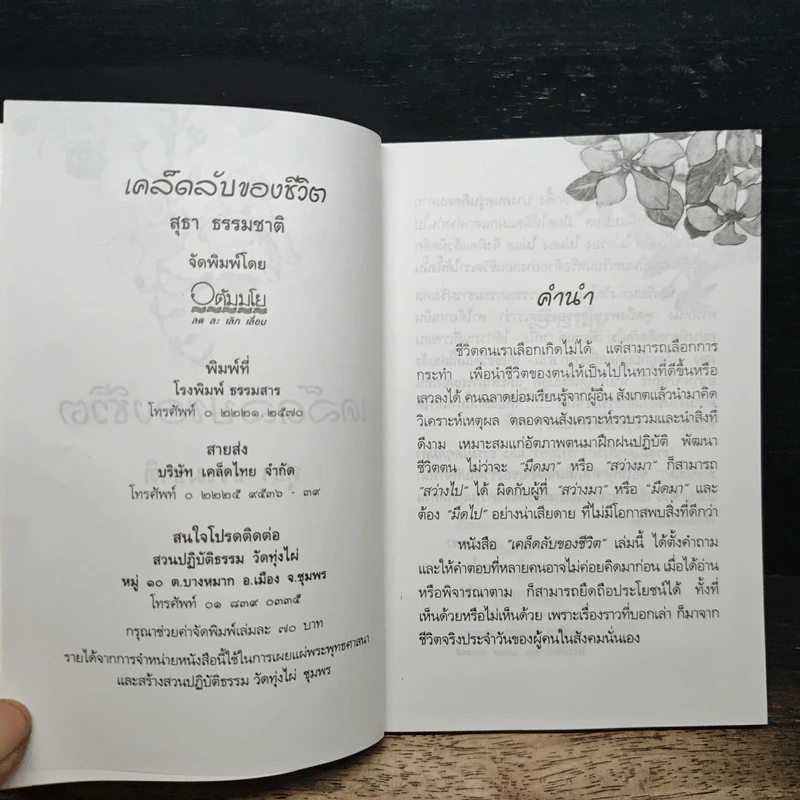 เคล็ดลับของชีวิต
สุธา ธรรมชาติ
จัดพิมพ์โดย
อตัมมโย
ลด ละ เลิก เลื่อน
พิมพ์ที่
โรงพิมพ์ ธรรมสาร
โทรศัพท์ ๐ ๒๒๒๑.๒๕๗๐
สายส่ง
บริษัท เคล็ดไทย จำกัด
โทรศัพท์ ๐ ๒๒๒๕ ๙๕๓๖ - ๓๙
สนใจโปรดติดต่อ
สวนปฏิบัติธรรม วัดทุ่งไผ่
หมู่ ๑๐ ต.บางหมาก อ.เมือง จ.ชุมพร
โทรศัพท์ ๐๑ ๘๓๙ ๐๓๓๕
กรุณาช่วยค่าจัดพิมพ์เล่มละ ๗๐ บาท
รายได้จากการจำหน่ายหนังสือนี้ใช้ในการเผยแผ่พระพุทธศาสนา
และสร้างสวนปฏิบัติธรรม วัดทุ่งไผ่ ชุมพร
คำนำ
ชีวิตคนเราเลือกเกิดไม่ได้ แต่สามารถเลือกการ
กระทำ เพื่อนำชีวิตของตนให้เป็นไปในทางที่ดีขึ้นหรือ
เลวลงได้ คนฉลาดย่อมเรียนรู้จากผู้อื่น สังเกตแล้วนำมาคิด
วิเคราะห์เหตุผล ตลอดจนสังเคราะห์รวบรวมและนำสิ่งที่
ดีงาม เหมาะสมแก่อัตภาพตนมาฝึกฝนปฏิบัติ พัฒนา
ชีวิตตน ไม่ว่าจะ "มืดมา" หรือ "สว่างมา" ก็สามารถ
"สว่างไป" ได้ ผิดกับผู้ที่ "สว่างมา" หรือ "มืดมา" และ
ต้อง "มืดไป" อย่างน่าเสียดาย ที่ไม่มีโอกาสพบสิ่งที่ดีกว่า
หนังสือ "เคล็ดลับของชีวิต" เล่มนี้ ได้ตั้งคำถาม
และให้คำตอบที่หลายคนอาจไม่ค่อยคิดมาก่อน เมื่อได้อ่าน
หรือพิจารณาตาม ก็สามารถยึดถือประโยชน์ได้ ทั้งที่
เห็นด้วยหรือไม่เห็นด้วย เพราะเรื่องราวที่บอกเล่า ก็มาจาก
ชีวิตจริงประจำวันของผู้คนในสังคมนั่นเอง